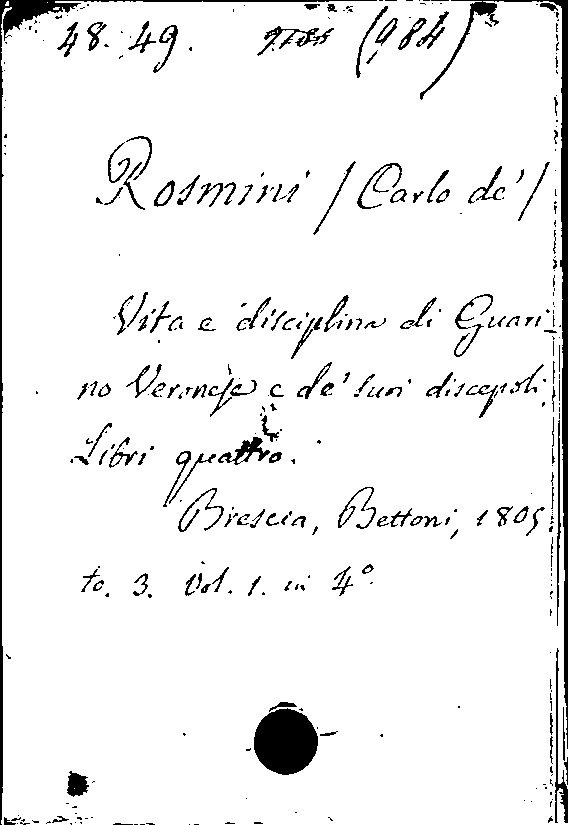 48. 49. (984)
Rosmini / Carlo de' /
Vita e disciplina di Guari-
no Veronese e de' suoi discepoli.
Libri quattro.
Brescia, Bettoni, 1805.
to. 3. Vol. 1. in 4º.